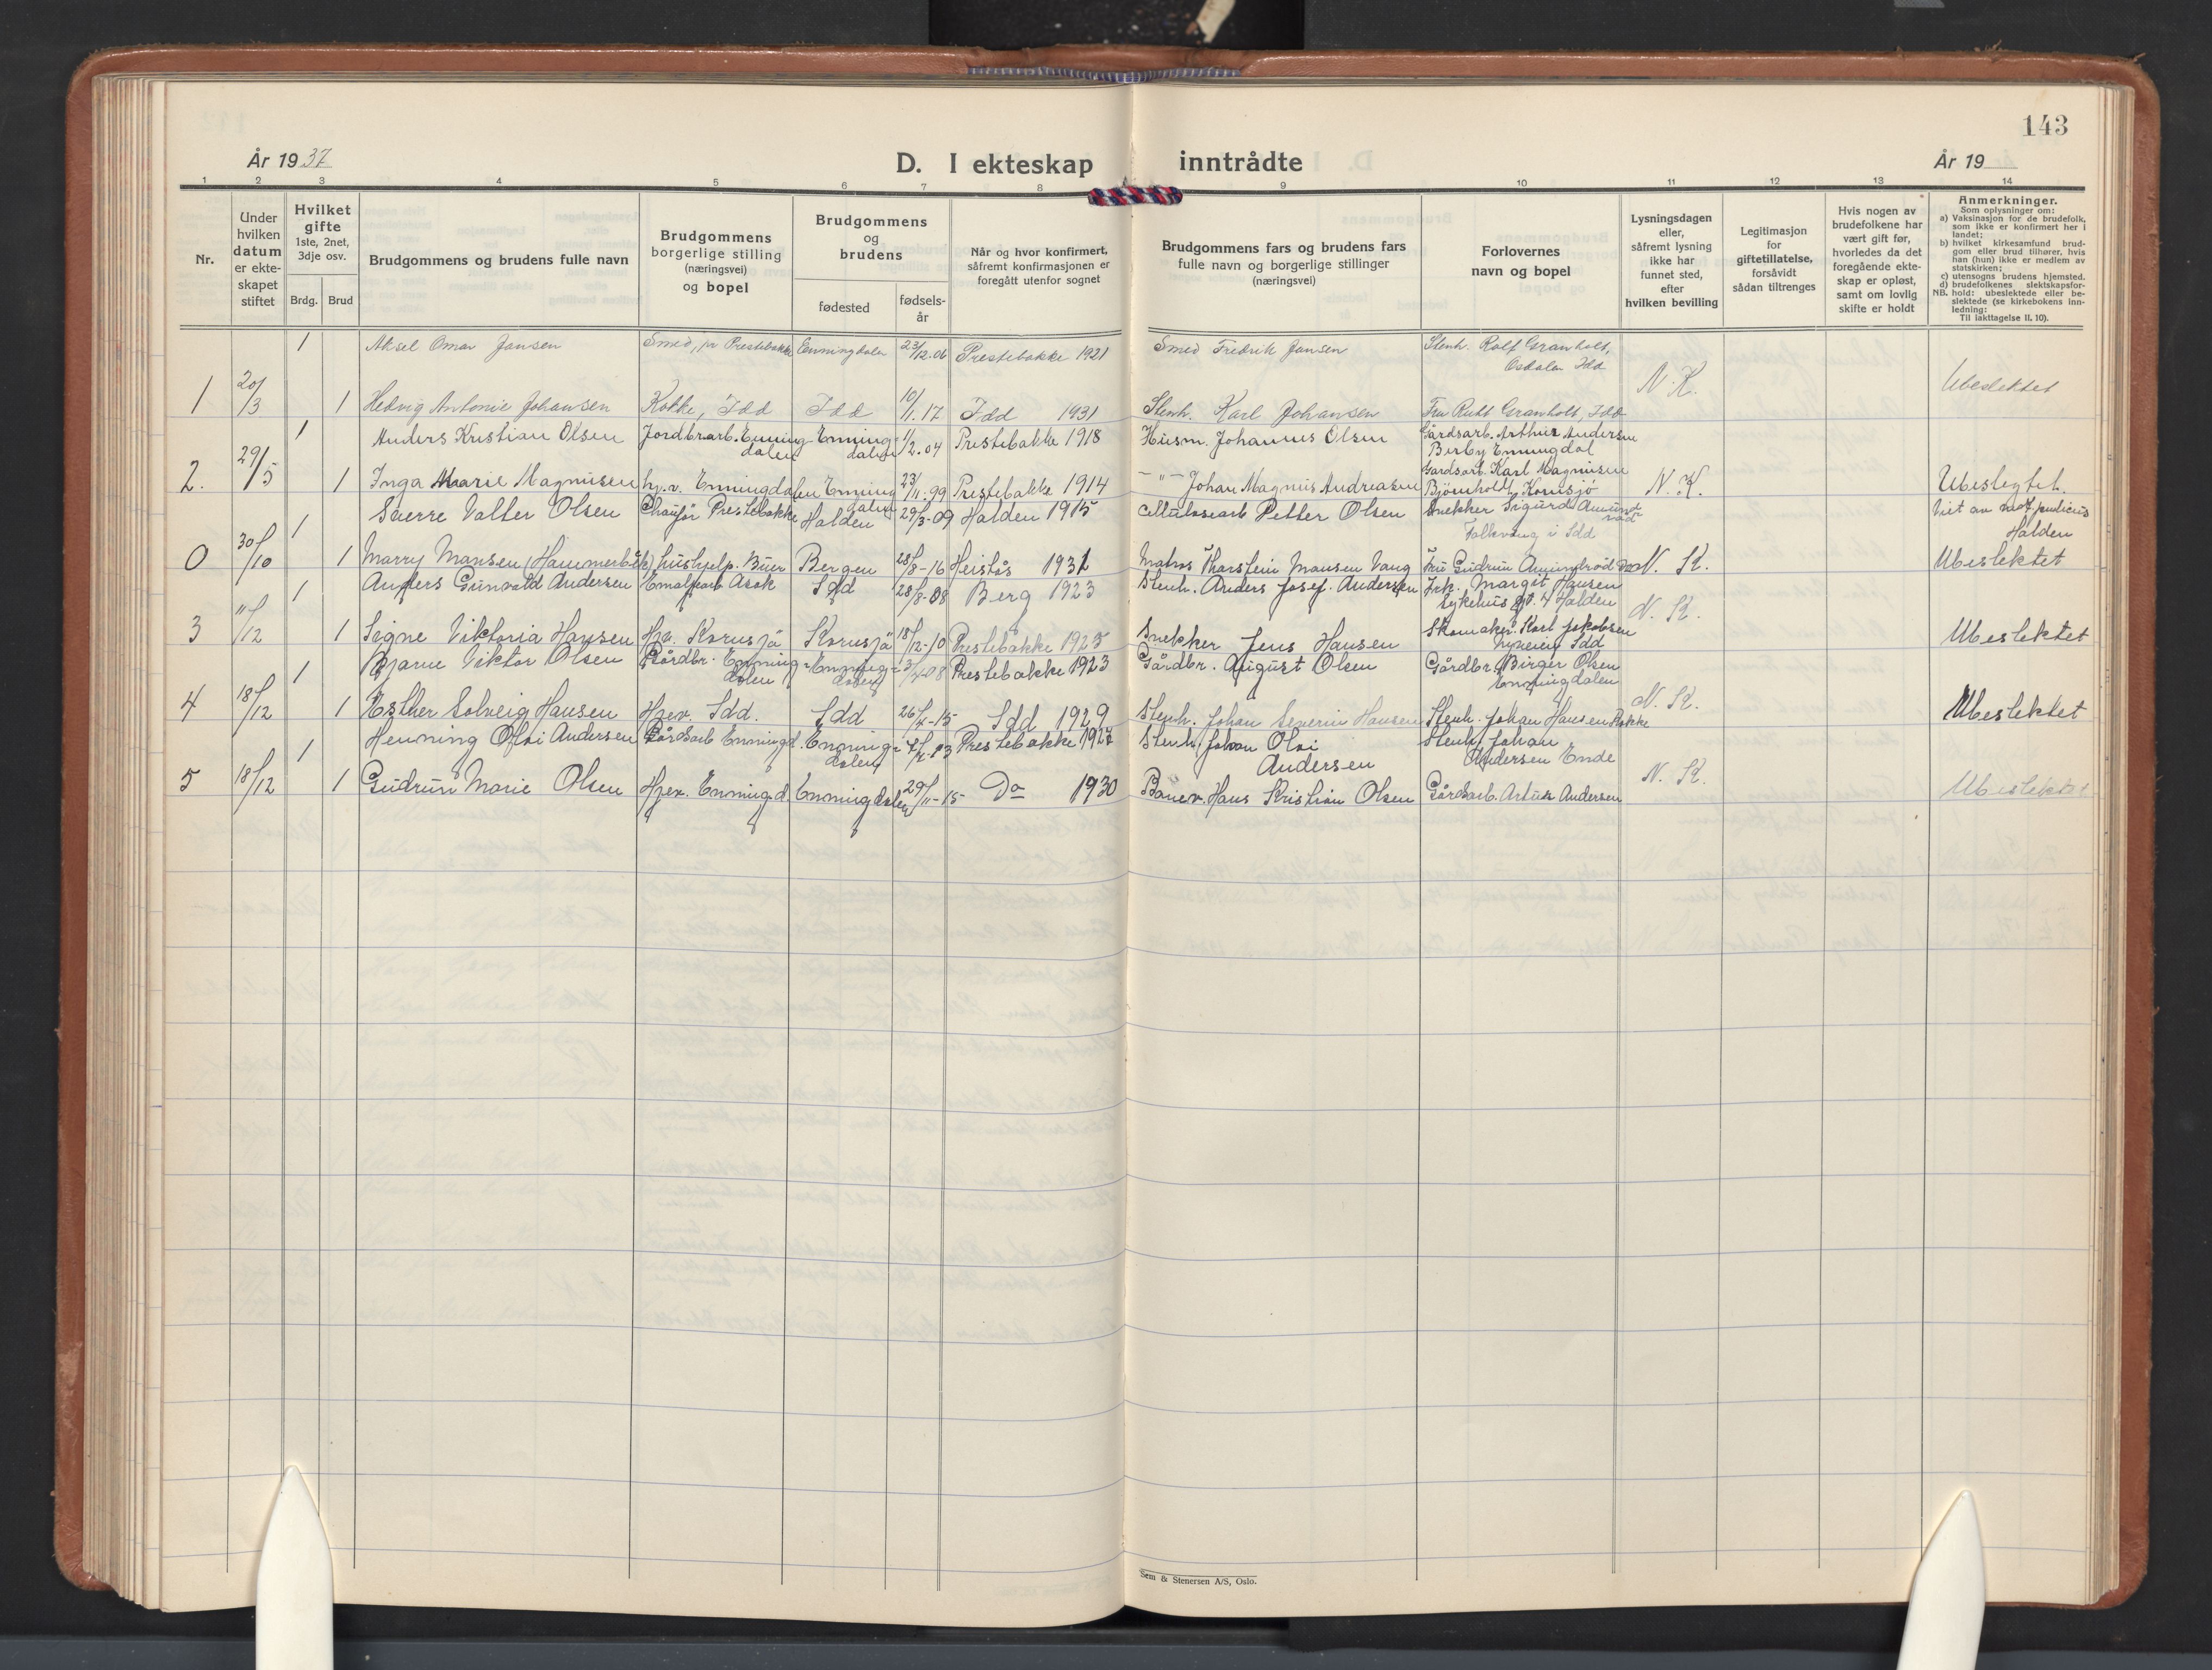 143
År 1937
D. I ekteskap inntrådte
År 19
1 2 3 4 5 6 7 8 9 10 11 12 13 14
Nr.
Under hvilken datum er ekteskapet stiftet
Hvilket gifte 1ste, 2net, 3dje osv.
Brdg. Brud
Brudgommens og brudens fulle navn
Brudgommens borgerlige stilling (næringsvei) og bopel
Brudgommens og brudens
fødested
fødsels-år
Når og hvor konfirmert, såfremt konfirmasjonen er foregått utenfor sognet
Brudgommens fars og brudens fars fulle navn og borgerlige stillinger (næringsvei)
Forlovernes navn og bopel
Lysningsdagen eller, såfremt lysning ikke har funnet sted, efter hvilken bevilling
Legitimasjon for giftetillatelse, forsåvidt sådan tiltrenges
Hvis nogen av brudefolkene har vært gift før, hvorledes da det foregående ekteskap er opløst, samt om lovlig skifte er holdt
Anmerkninger.
Som oplysninger om:
a) Vaksinasjon for de brudefolk, som ikke er konfirmert her i landet;
b) hvilket kirkesamfund brudgom eller brud tilhører, hvis han (hun) ikke er medlem av statskirken;
c) utensogns brudens hjemsted.
d) brudefolkenes slektskapsforhold: ubeslektede eller beslektede (se kirkebokens innledning:
NB.
Til iakttagelse II. 10).
1 Aksel Omar Jansen Smed, pr Prestebakke Enningdalen 23/12.06 Prestebakke 1921 Smed Fredrik Jansen Stenh. Rolf Granholt,
Osdalen Idd
1 20/3 1 Hedvig Antonie Johansen Kokke, Idd Idd 10/11.17 Idd 1931 Stenh. Karl Johansen Fru Ruth Granholt Idd N. K. Ubeslektet
1 Anders Kristian Olsen Jordbrarb. Enningdalen Enningdalen 1/2.04 Prestebakke 1918 Husm. Johannes Olsen Gårdsarb. Arthur Andersen
Berby Enningdal
2. 29/5 1 Inga Marie Magnusen hj.v. Enningdalen Enningdalen 23/11.99 Prestebakke 1914 -"- Johan Magnus Andreasen Gardsarb. Karl Magnusen
Björnholdt, Kornsjö N. K. Ubeslegtet.
1 Sverre Valter Olsen Chaufør Prestebakke Halden 29/3-09 Halden 1915 Cellulosearb Petter Olsen Snekker Sigurd Amundrød
Falkevang i Idd Viet av not. publicus
Halden
0 30/10 1 Marry Mansen (Hammerbäk) hushjelp. Buer Bergen 28/8-16 Heistås 1931 Matros Tharstein Mansen Vang Fru Gudrun Amundrød Do N. K. Ubeslektet
1 Anders Gunvald Andersen Emaljearb Asak Idd 28/8-08 Berg 1923 Stenh. Anders Josef. Andersen Frk. Margit Hansen
Sykehus gt. 4 Halden
3 11/12 1 Signe Viktoria Hansen Hjv. Kornsjø Kornsjø 18/12-10 Prestebakke 1925 Snekker Jens Hansen Skomaker. Karl Jakobsen
Idd N. K. Ubeslektet
1 Bjarne Viktor Olsen Gårdbr. Enningdalen Enningdalen 3/4 08 Prestebakke 1923 Gårdbr. August Olsen Gårdbr. Birger Olsen
Enningdalen
4 18/12 1 Esther Solveig Hansen Hjev. Idd. Idd 26/4-15 Idd 1929 Stenh. Johan Severin Hansen Stenh. Johan Hansen Bakke N. K. Ubeslektet
1 Henning Olvi Andersen Gårdsarb Enningd. Enningdalen Prestebakke 1927 Stenh. Johan Olvi
Andersen Stenh. Johan
Andersen Ende
5 18/12 1 Gudrun Marie Olsen Hjev. Enningd. Enningdalen 29/11-15 Do 1930 Banev. Hans Kristian Olsen Gårdsarb. Artur Andersen N. K. Ubeslektet
Sem & Stenersen A/S, Oslo.